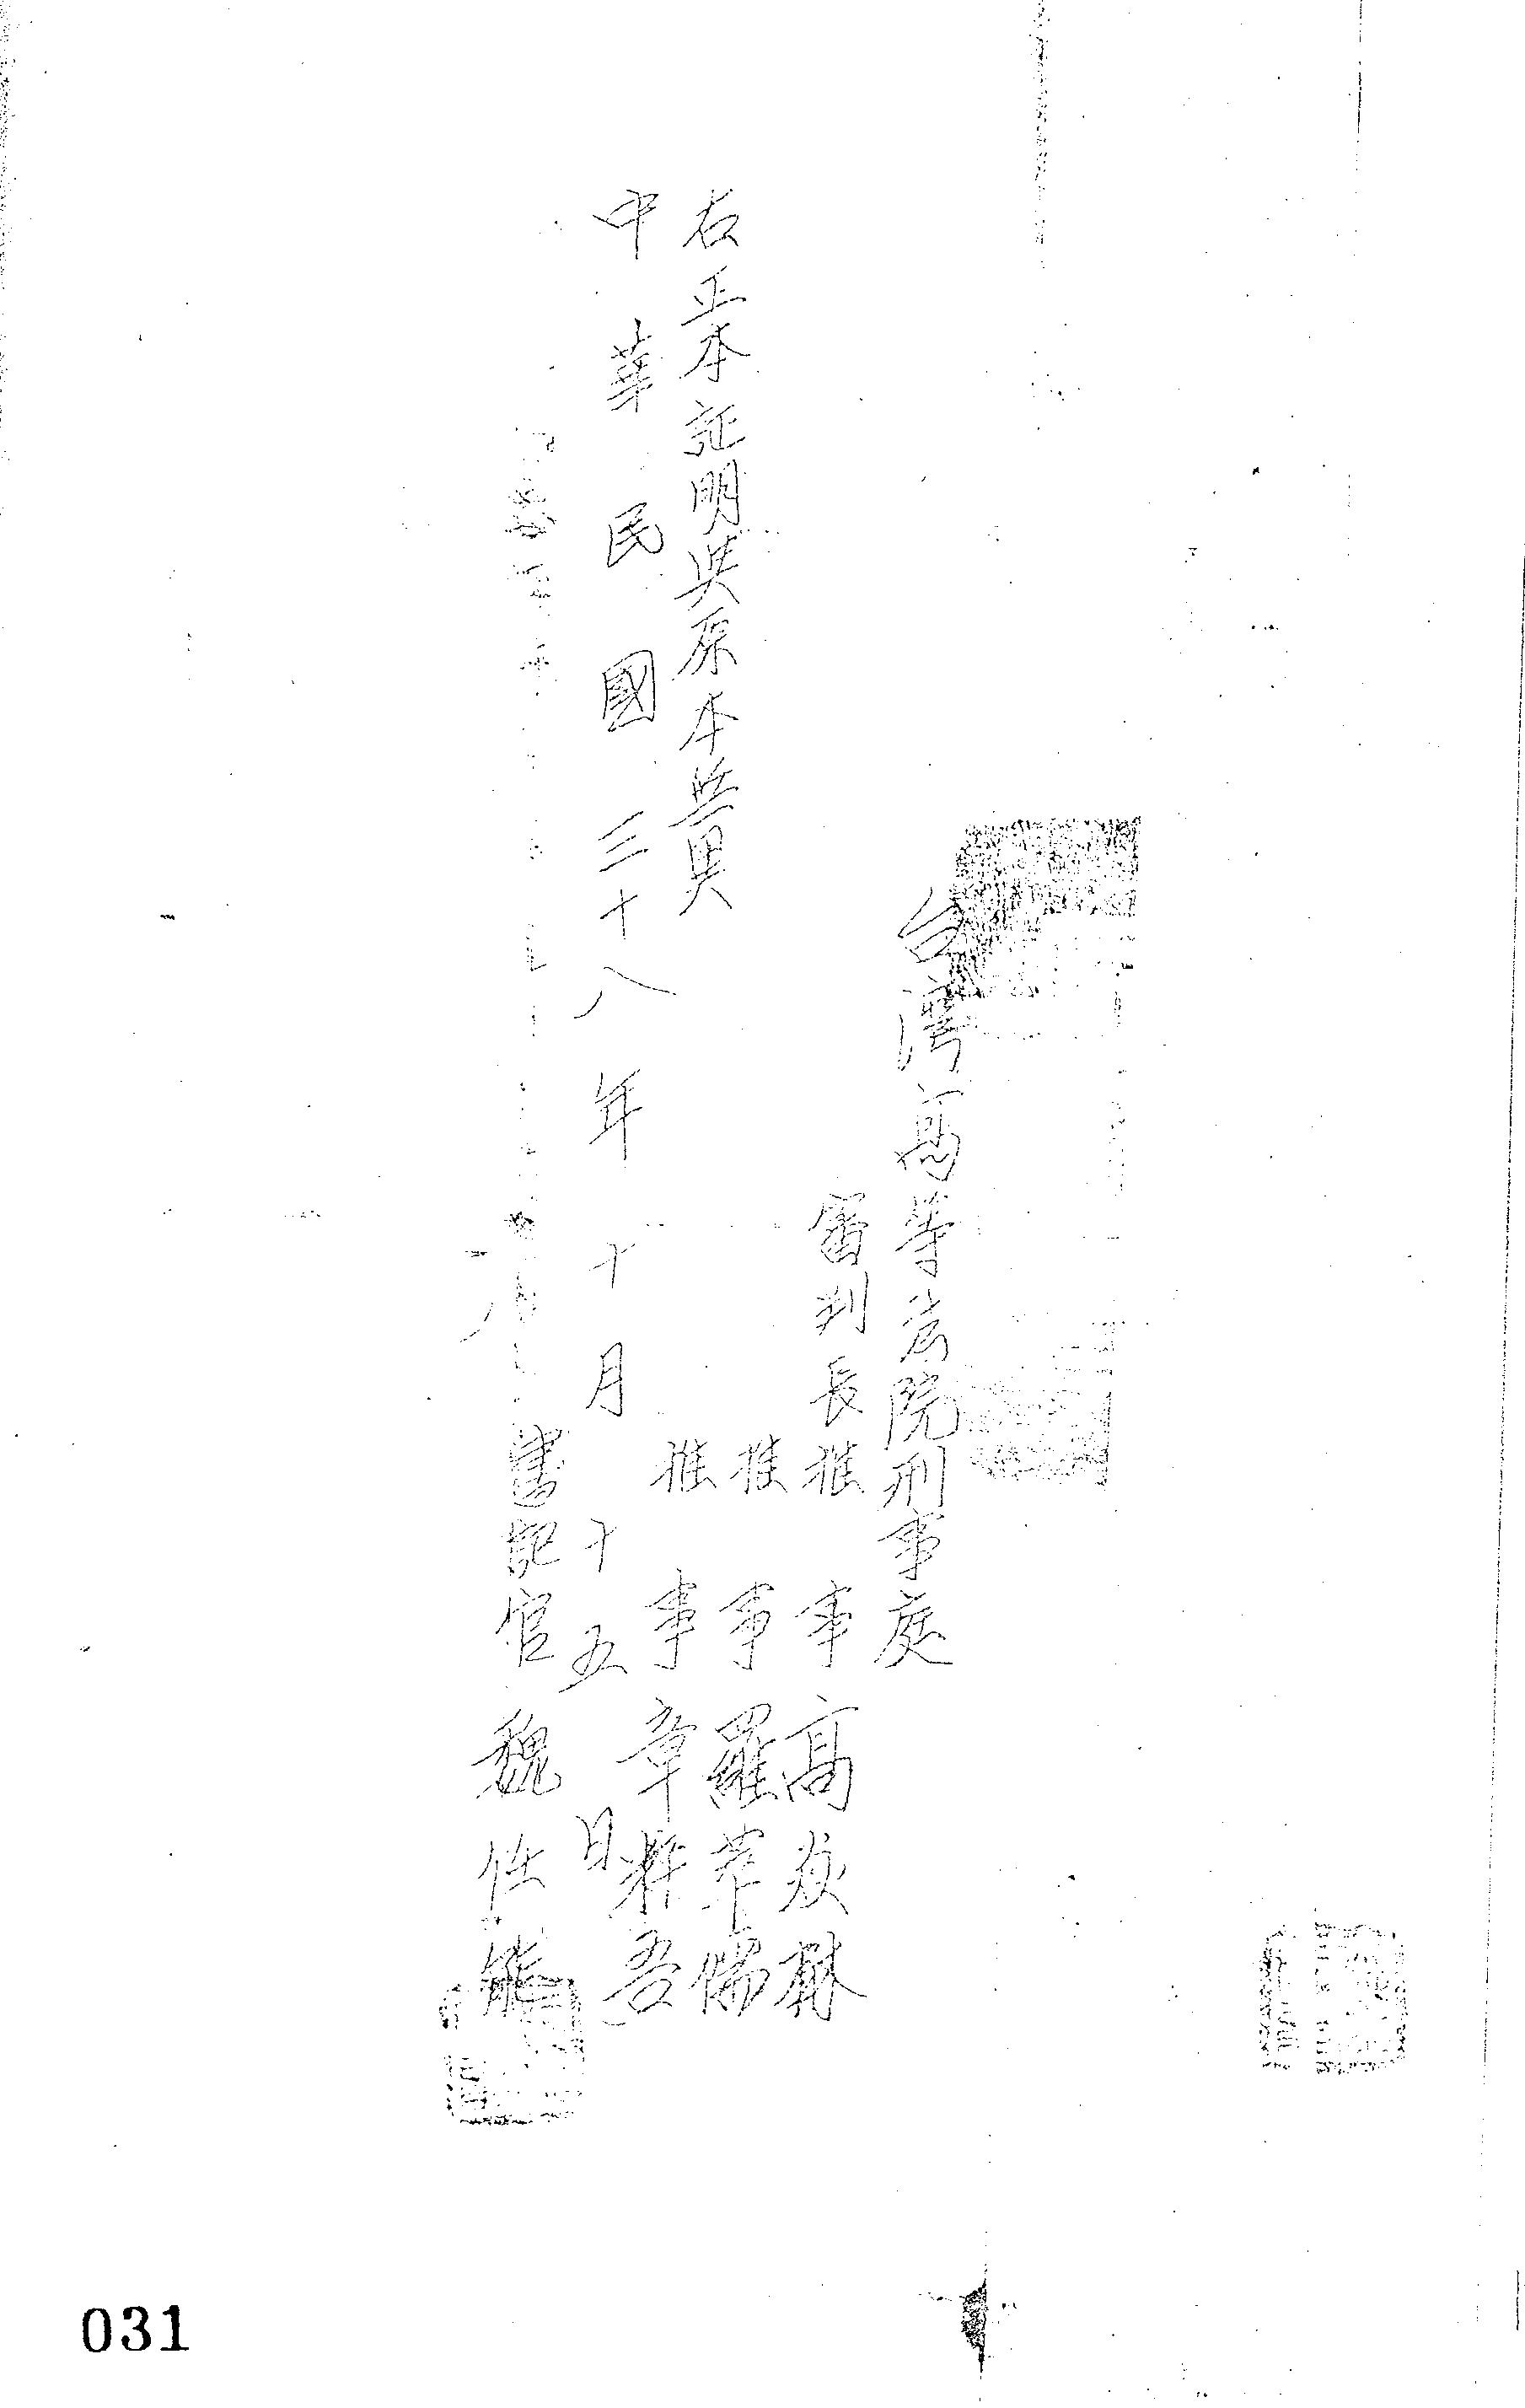 台灣高等法院刑事庭
審判長推事高炎林
推事羅萃儒
推事章粹吾
右正本証明與原本無異
中華民國三十八年十月十五日
書記官魏任能
031